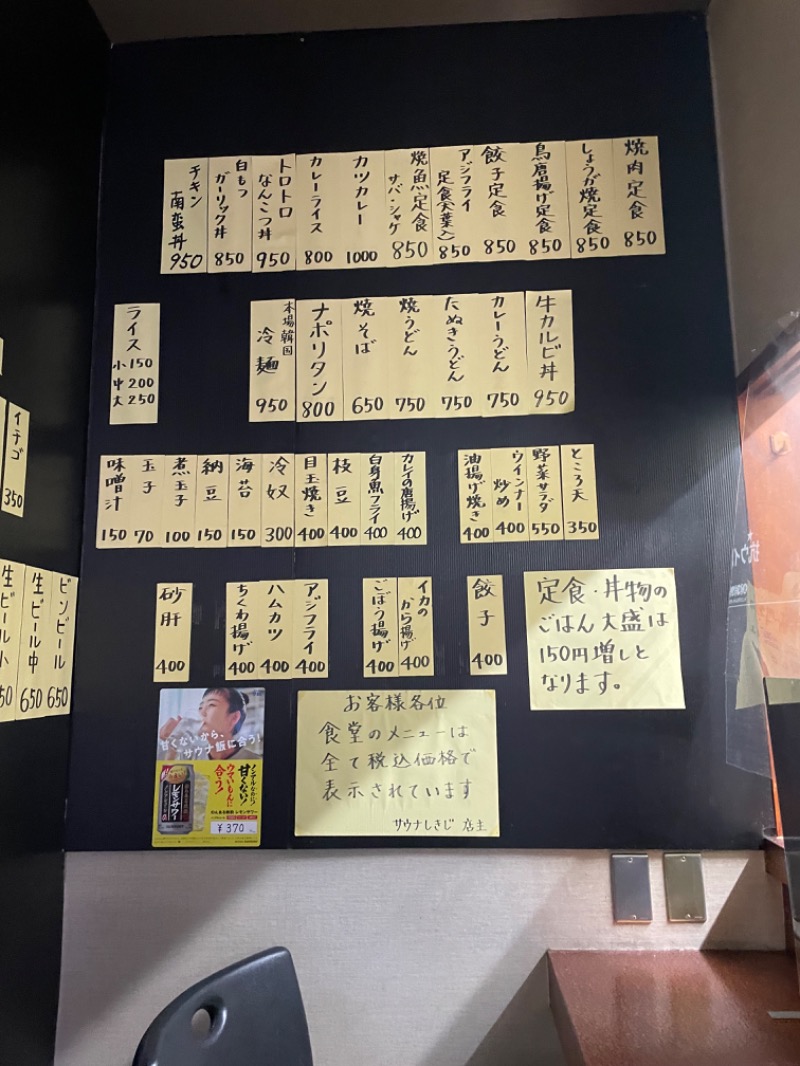 焼肉定食 850
しょうが焼定食 850
鳥唐揚げ定食 850
餃子定食 850
アジフライ
定食(大葉入) 850
焼魚定食
サバ・シャケ
850
カツカレー 1000
カレーライス 800
トロトロ
なんこつ丼
950
白もつ
ガーリック丼
850
チキン
南蛮丼
950
牛カルビ丼 950
カレーうどん 750
たぬきうどん 750
焼うどん 750
焼そば 650
ナポリタン 800
本場韓国
冷麺
950
ライス
小150
中200
大250
ところ天 350
野菜サラダ 550
ウインナー
炒め
400
油揚げ焼き 400
カレイの唐揚げ 400
白身魚フライ 400
枝豆 400
目玉焼き 400
冷奴 300
海苔 150
納豆 150
煮玉子 100
玉子 70
味噌汁 150
餃子 400
イカの
から揚げ
400
ごぼう揚げ 400
アジフライ 400
ハムカツ 400
ちくわ揚げ 400
砂肝 400
定食・丼物の
ごはん大盛は
150円増しと
なります。
お客様各位
食堂のメニューは
全て税込価格で
表示されています
サウナしきじ 店主
甘くないから、
サウナ飯に合う!
ノンアルなのに!
甘くない!
ウマいもんに
合う!
レモンサワー
¥370
イチゴ 350
ビンビール 650
生ビール中 650
生ビール小 50